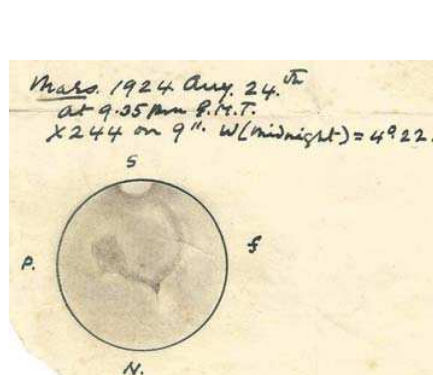 Mars. 1924 Aug. 24.th
at 9.35 pm G.M.T.
X244 on 9". W(midnight)=4°.22.
S
P. f
N.